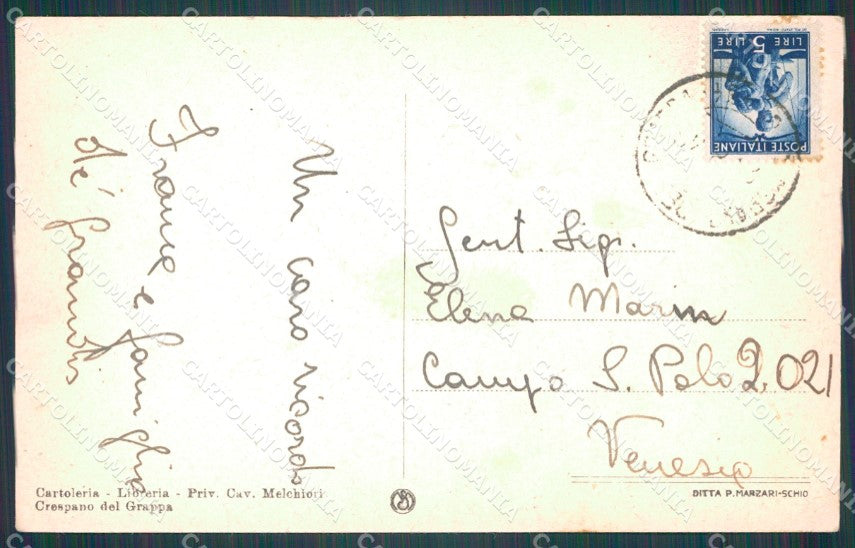 5 LIRE
POSTE ITALIANE
Un caro ricordo
Franca e famiglia
de
Gent. Sig.
Elena Marin
Campo S. Polo 2.021
Venezia
Cartoleria - Libreria - Priv. Cav. Melchiori
Crespano del Grappa
DITTA P. MARZARI-SCHIO
CARTOLINOMANIA